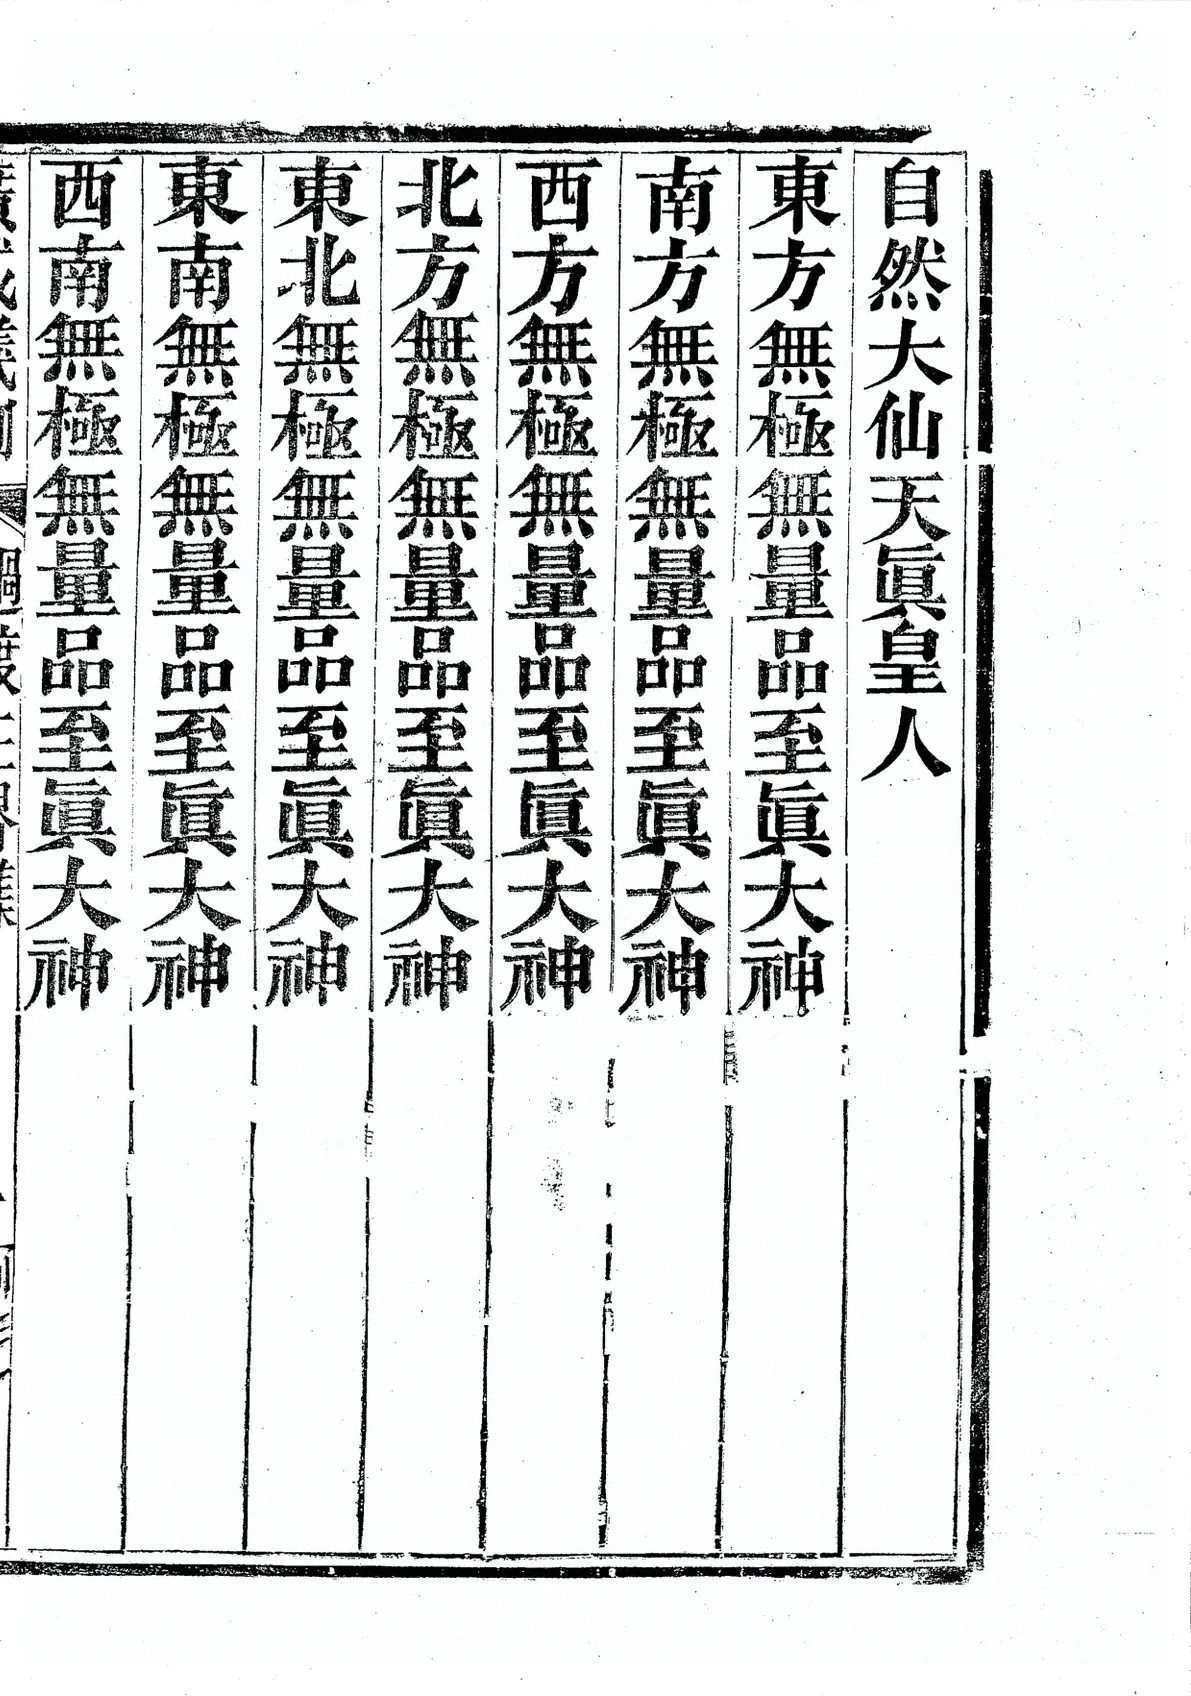 自然大仙天眞皇人
東方無極無量品至眞大神
南方無極無量品至眞大神
西方無極無量品至眞大神
北方無極無量品至眞大神
東北無極無量品至眞大神
東南無極無量品至眞大神
西南無極無量品至眞大神